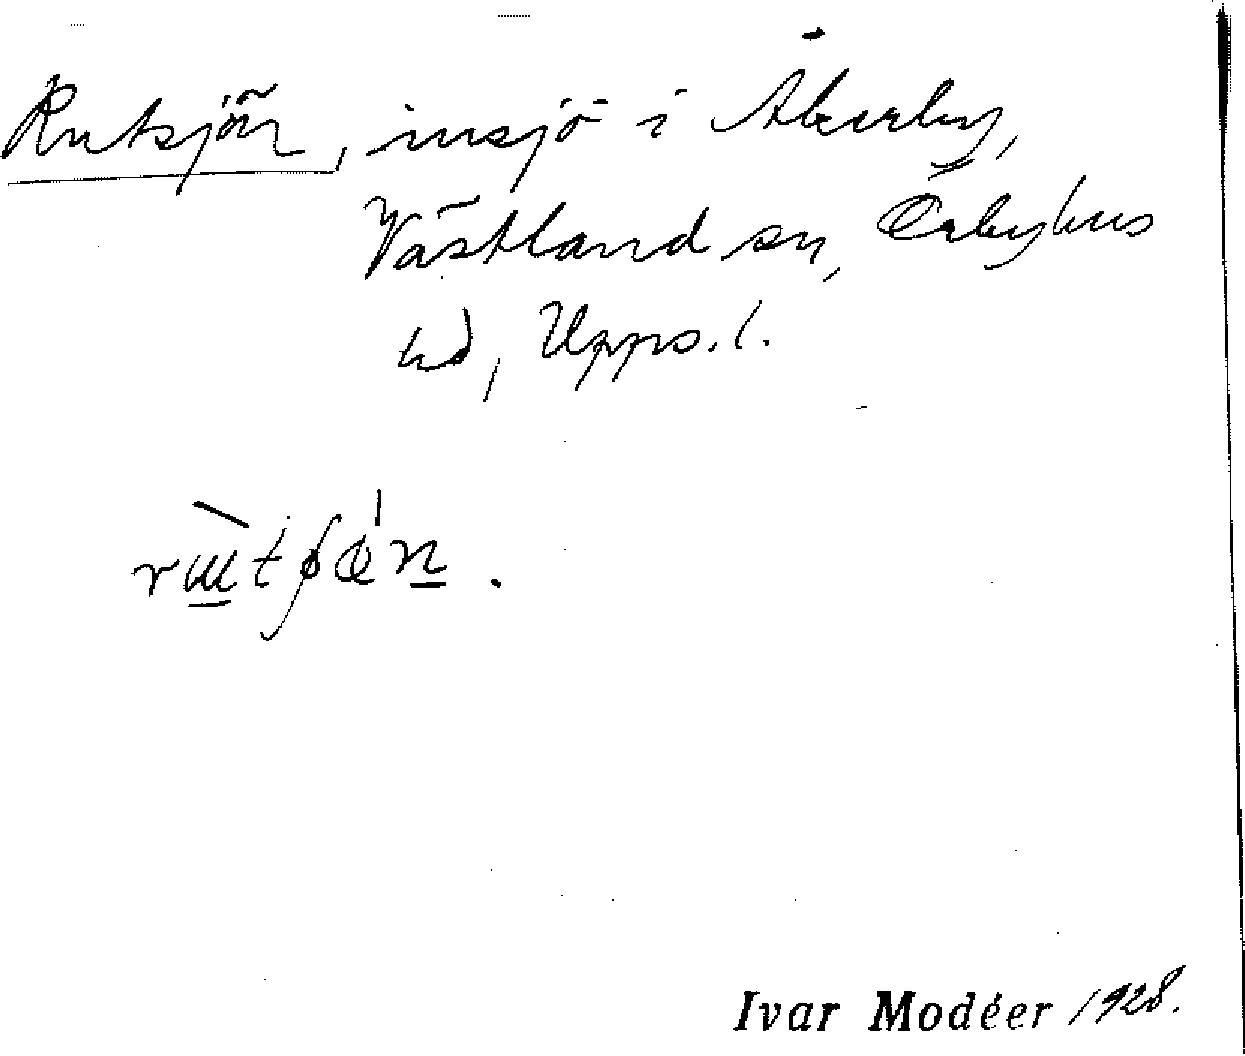 Rutsjön, insjö i Åkerby,
Västland sn, Örbyhus
hd, Upps. l.
Ivar Modéer 1928.